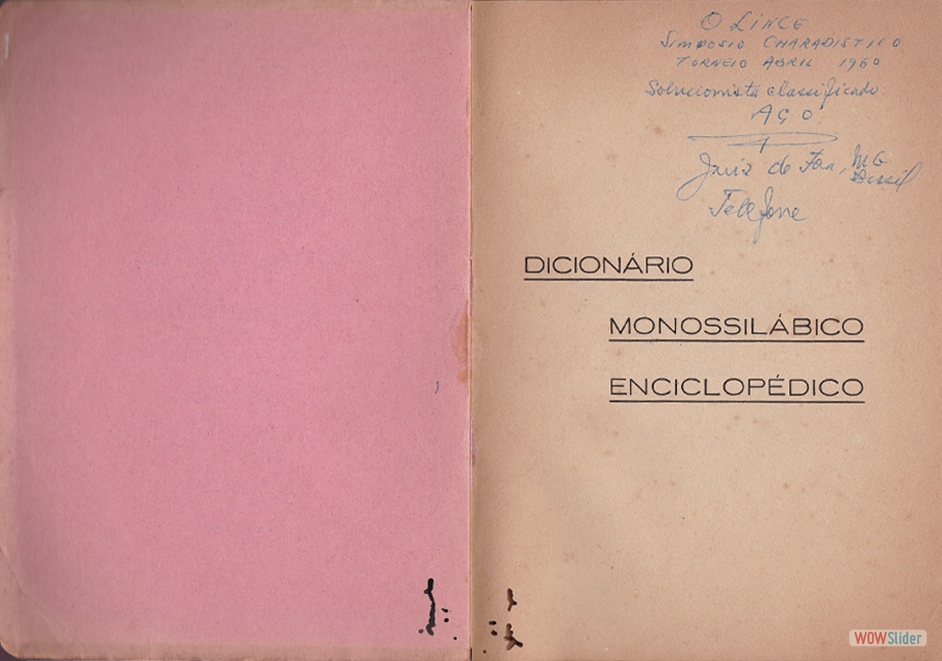 O LINCE
SIMPOSIO CHARADISTICO
TORNEIO ABRIL 1960
Solucionista classificado:
AÇO
Juiz de Fora, MG
Brasil
Telefone
DICIONÁRIO
MONOSSILÁBICO
ENCICLOPÉDICO
WOWSlider